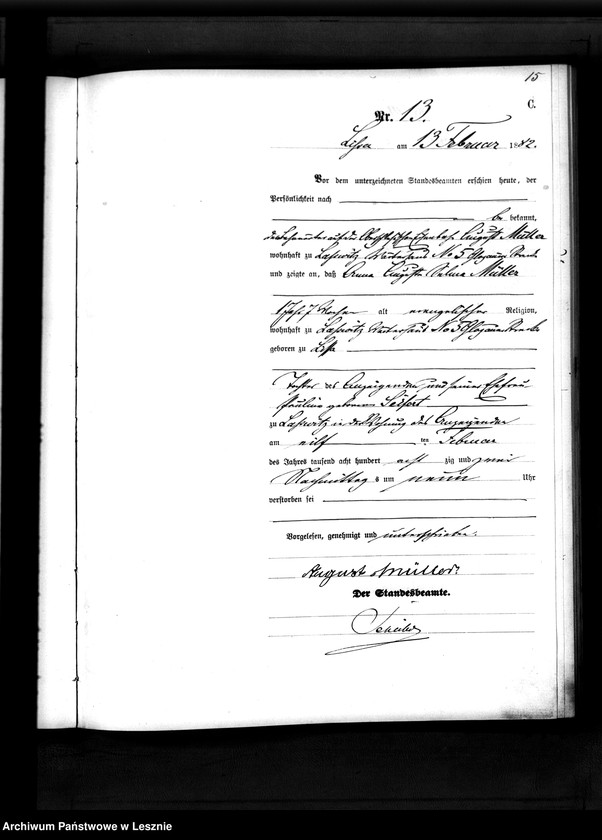 15
C.
Nr. 13.
Lissa am 13 Februar 1882.
Vor dem unterzeichneten Standesbeamten erschien heute, der
Persönlichkeit nach
be kannt,
August Müller
wohnhaft zu Laßwitz No 5
und zeigte an, daß Anna Auguste Selma Müller
7 Wochen alt evangelischer Religion,
wohnhaft zu Laßwitz No 5
geboren zu Lissa
Tochter des Anzeigenden und seiner Ehefrau
Pauline geborenen Seifert
zu Laßwitz in der Wohnung des Anzeigenden
am eilf ten Februar
des Jahres tausend acht hundert acht zig und zwei
Nachmittag s um neun Uhr
verstorben sei
Vorgelesen, genehmigt und unterschrieben.
August Müller.
Der Standesbeamte.
Archiwum Państwowe w Lesznie